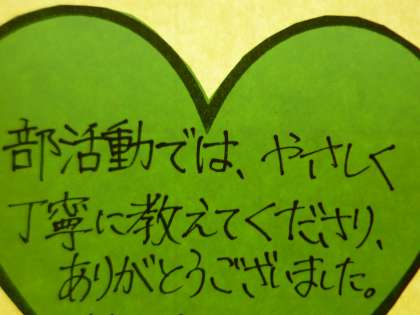 部活動では、やさしく
丁寧に教えてくださり、
ありがとうございました。